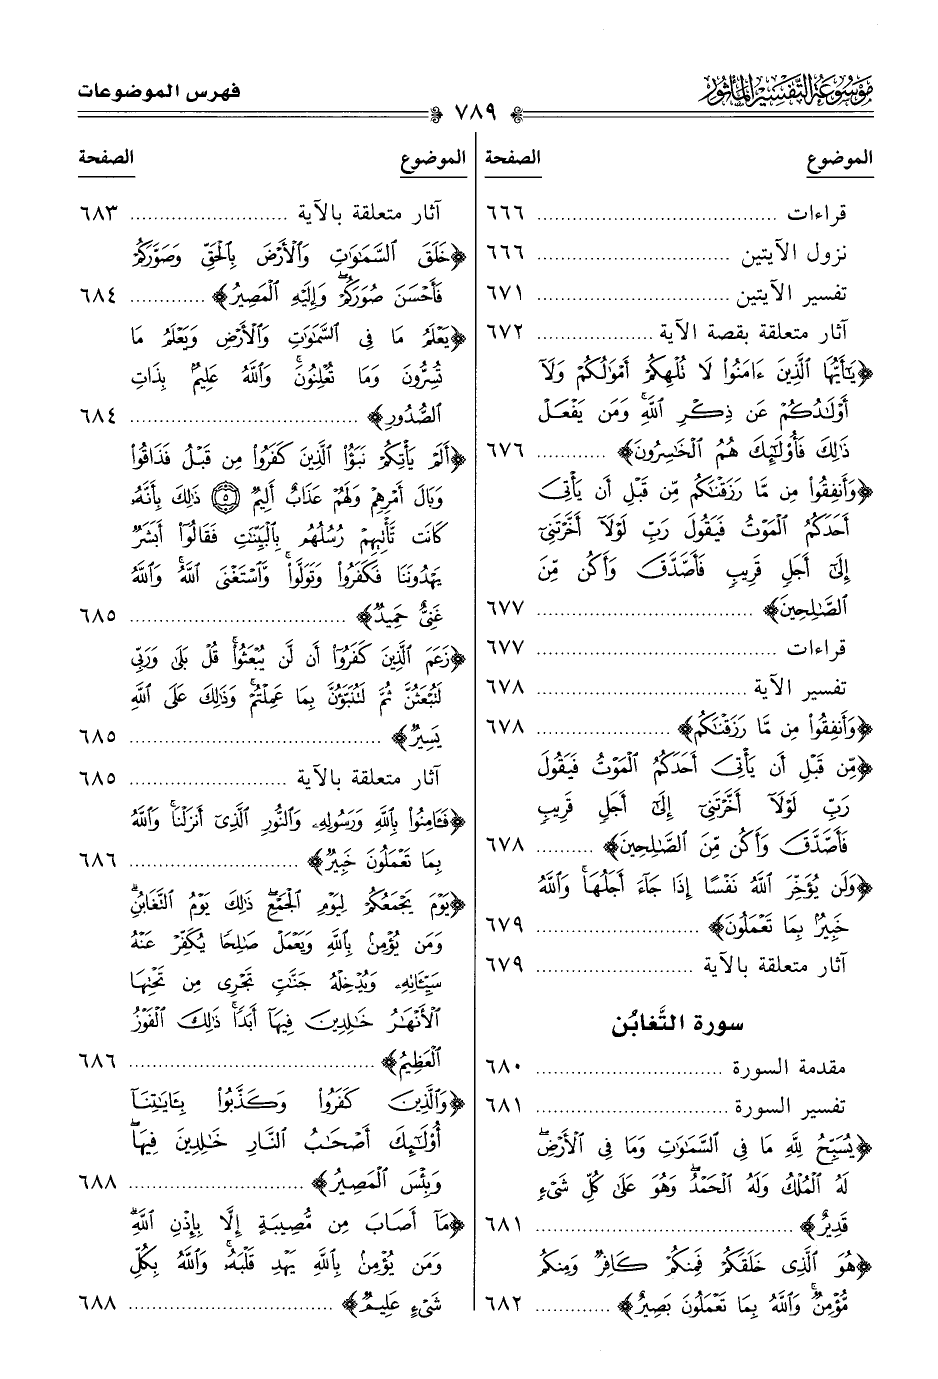 موسوعة التفسير المأثور
فهرس الموضوعات
٧٨٩
الموضوع الصفحة
قراءات ........ ٦٦٦
نزول الآيتين ........ ٦٦٦
تفسير الآيتين ........ ٦٧١
آثار متعلقة بقصة الآية ........ ٦٧٢
﴿يَٰٓأَيُّهَا ٱلَّذِينَ ءَامَنُوا۟ لَا تُلْهِكُمْ أَمْوَٰلُكُمْ وَلَآ
أَوْلَٰدُكُمْ عَن ذِكْرِ ٱللَّهِ ۚ وَمَن يَفْعَلْ
ذَٰلِكَ فَأُو۟لَٰٓئِكَ هُمُ ٱلْخَٰسِرُونَ﴾ ........ ٦٧٦
﴿وَأَنفِقُوا۟ مِن مَّا رَزَقْنَٰكُم مِّن قَبْلِ أَن يَأْتِىَ
أَحَدَكُمُ ٱلْمَوْتُ فَيَقُولَ رَبِّ لَوْلَآ أَخَّرْتَنِىٓ
إِلَىٰٓ أَجَلٍ قَرِيبٍ فَأَصَّدَّقَ وَأَكُن مِّنَ
ٱلصَّٰلِحِينَ﴾ ........ ٦٧٧
قراءات ........ ٦٧٧
تفسير الآية ........ ٦٧٨
﴿وَأَنفِقُوا۟ مِن مَّا رَزَقْنَٰكُم﴾ ........ ٦٧٨
﴿مِّن قَبْلِ أَن يَأْتِىَ أَحَدَكُمُ ٱلْمَوْتُ فَيَقُولَ
رَبِّ لَوْلَآ أَخَّرْتَنِىٓ إِلَىٰٓ أَجَلٍ قَرِيبٍ
فَأَصَّدَّقَ وَأَكُن مِّنَ ٱلصَّٰلِحِينَ﴾ ........ ٦٧٨
﴿وَلَن يُؤَخِّرَ ٱللَّهُ نَفْسًا إِذَا جَآءَ أَجَلُهَا ۚ وَٱللَّهُ
خَبِيرٌۢ بِمَا تَعْمَلُونَ﴾ ........ ٦٧٩
آثار متعلقة بالآية ........ ٦٧٩
سورة التَّغابُن
مقدمة السورة ........ ٦٨٠
تفسير السورة ........ ٦٨١
﴿يُسَبِّحُ لِلَّهِ مَا فِى ٱلسَّمَٰوَٰتِ وَمَا فِى ٱلْأَرْضِ ۖ
لَهُ ٱلْمُلْكُ وَلَهُ ٱلْحَمْدُ ۖ وَهُوَ عَلَىٰ كُلِّ شَىْءٍ
قَدِيرٌ﴾ ........ ٦٨١
﴿هُوَ ٱلَّذِى خَلَقَكُمْ فَمِنكُمْ كَافِرٌ وَمِنكُم
مُّؤْمِنٌ ۚ وَٱللَّهُ بِمَا تَعْمَلُونَ بَصِيرٌ﴾ ........ ٦٨٢
الموضوع الصفحة
آثار متعلقة بالآية ........ ٦٨٣
﴿خَلَقَ ٱلسَّمَٰوَٰتِ وَٱلْأَرْضَ بِٱلْحَقِّ وَصَوَّرَكُمْ
فَأَحْسَنَ صُوَرَكُمْ ۖ وَإِلَيْهِ ٱلْمَصِيرُ﴾ ........ ٦٨٤
﴿يَعْلَمُ مَا فِى ٱلسَّمَٰوَٰتِ وَٱلْأَرْضِ وَيَعْلَمُ مَا
تُسِرُّونَ وَمَا تُعْلِنُونَ ۚ وَٱللَّهُ عَلِيمٌۢ بِذَاتِ
ٱلصُّدُورِ﴾ ........ ٦٨٤
﴿أَلَمْ يَأْتِكُمْ نَبَؤُا۟ ٱلَّذِينَ كَفَرُوا۟ مِن قَبْلُ فَذَاقُوا۟
وَبَالَ أَمْرِهِمْ وَلَهُمْ عَذَابٌ أَلِيمٌ ۝٥ ذَٰلِكَ بِأَنَّهُۥ
كَانَت تَّأْتِيهِمْ رُسُلُهُم بِٱلْبَيِّنَٰتِ فَقَالُوٓا۟ أَبَشَرٌ
يَهْدُونَنَا فَكَفَرُوا۟ وَتَوَلَّوا۟ ۚ وَّٱسْتَغْنَى ٱللَّهُ ۚ وَٱللَّهُ
غَنِىٌّ حَمِيدٌ﴾ ........ ٦٨٥
﴿زَعَمَ ٱلَّذِينَ كَفَرُوٓا۟ أَن لَّن يُبْعَثُوا۟ ۚ قُلْ بَلَىٰ وَرَبِّى
لَتُبْعَثُنَّ ثُمَّ لَتُنَبَّؤُنَّ بِمَا عَمِلْتُمْ ۚ وَذَٰلِكَ عَلَى ٱللَّهِ
يَسِيرٌ﴾ ........ ٦٨٥
آثار متعلقة بالآية ........ ٦٨٥
﴿فَـَٔامِنُوا۟ بِٱللَّهِ وَرَسُولِهِۦ وَٱلنُّورِ ٱلَّذِىٓ أَنزَلْنَا ۚ وَٱللَّهُ
بِمَا تَعْمَلُونَ خَبِيرٌ﴾ ........ ٦٨٦
﴿يَوْمَ يَجْمَعُكُمْ لِيَوْمِ ٱلْجَمْعِ ۖ ذَٰلِكَ يَوْمُ ٱلتَّغَابُنِ ۗ
وَمَن يُؤْمِنۢ بِٱللَّهِ وَيَعْمَلْ صَٰلِحًا يُكَفِّرْ عَنْهُ
سَيِّـَٔاتِهِۦ وَيُدْخِلْهُ جَنَّٰتٍ تَجْرِى مِن تَحْتِهَا
ٱلْأَنْهَٰرُ خَٰلِدِينَ فِيهَآ أَبَدًا ۚ ذَٰلِكَ ٱلْفَوْزُ
ٱلْعَظِيمُ﴾ ........ ٦٨٦
﴿وَٱلَّذِينَ كَفَرُوا۟ وَكَذَّبُوا۟ بِـَٔايَٰتِنَآ
أُو۟لَٰٓئِكَ أَصْحَٰبُ ٱلنَّارِ خَٰلِدِينَ فِيهَا ۖ
وَبِئْسَ ٱلْمَصِيرُ﴾ ........ ٦٨٨
﴿مَآ أَصَابَ مِن مُّصِيبَةٍ إِلَّا بِإِذْنِ ٱللَّهِ ۗ
وَمَن يُؤْمِنۢ بِٱللَّهِ يَهْدِ قَلْبَهُۥ ۚ وَٱللَّهُ بِكُلِّ
شَىْءٍ عَلِيمٌ﴾ ........ ٦٨٨